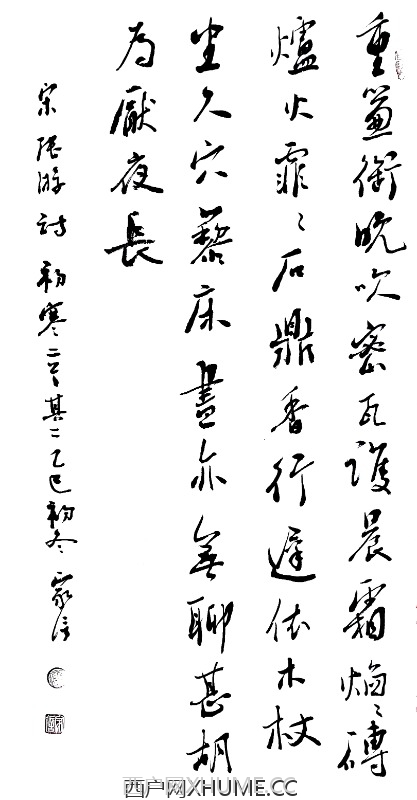 重簾衛晚吹密瓦護晨霜焰〻磚
爐火霏〻石鼎香行遲依木杖
坐久穴藜床晝亦無聊甚胡
為厭夜長
宋陸游詩 初寒二首其二乙巳初冬 家信
西户网XHUME.CC